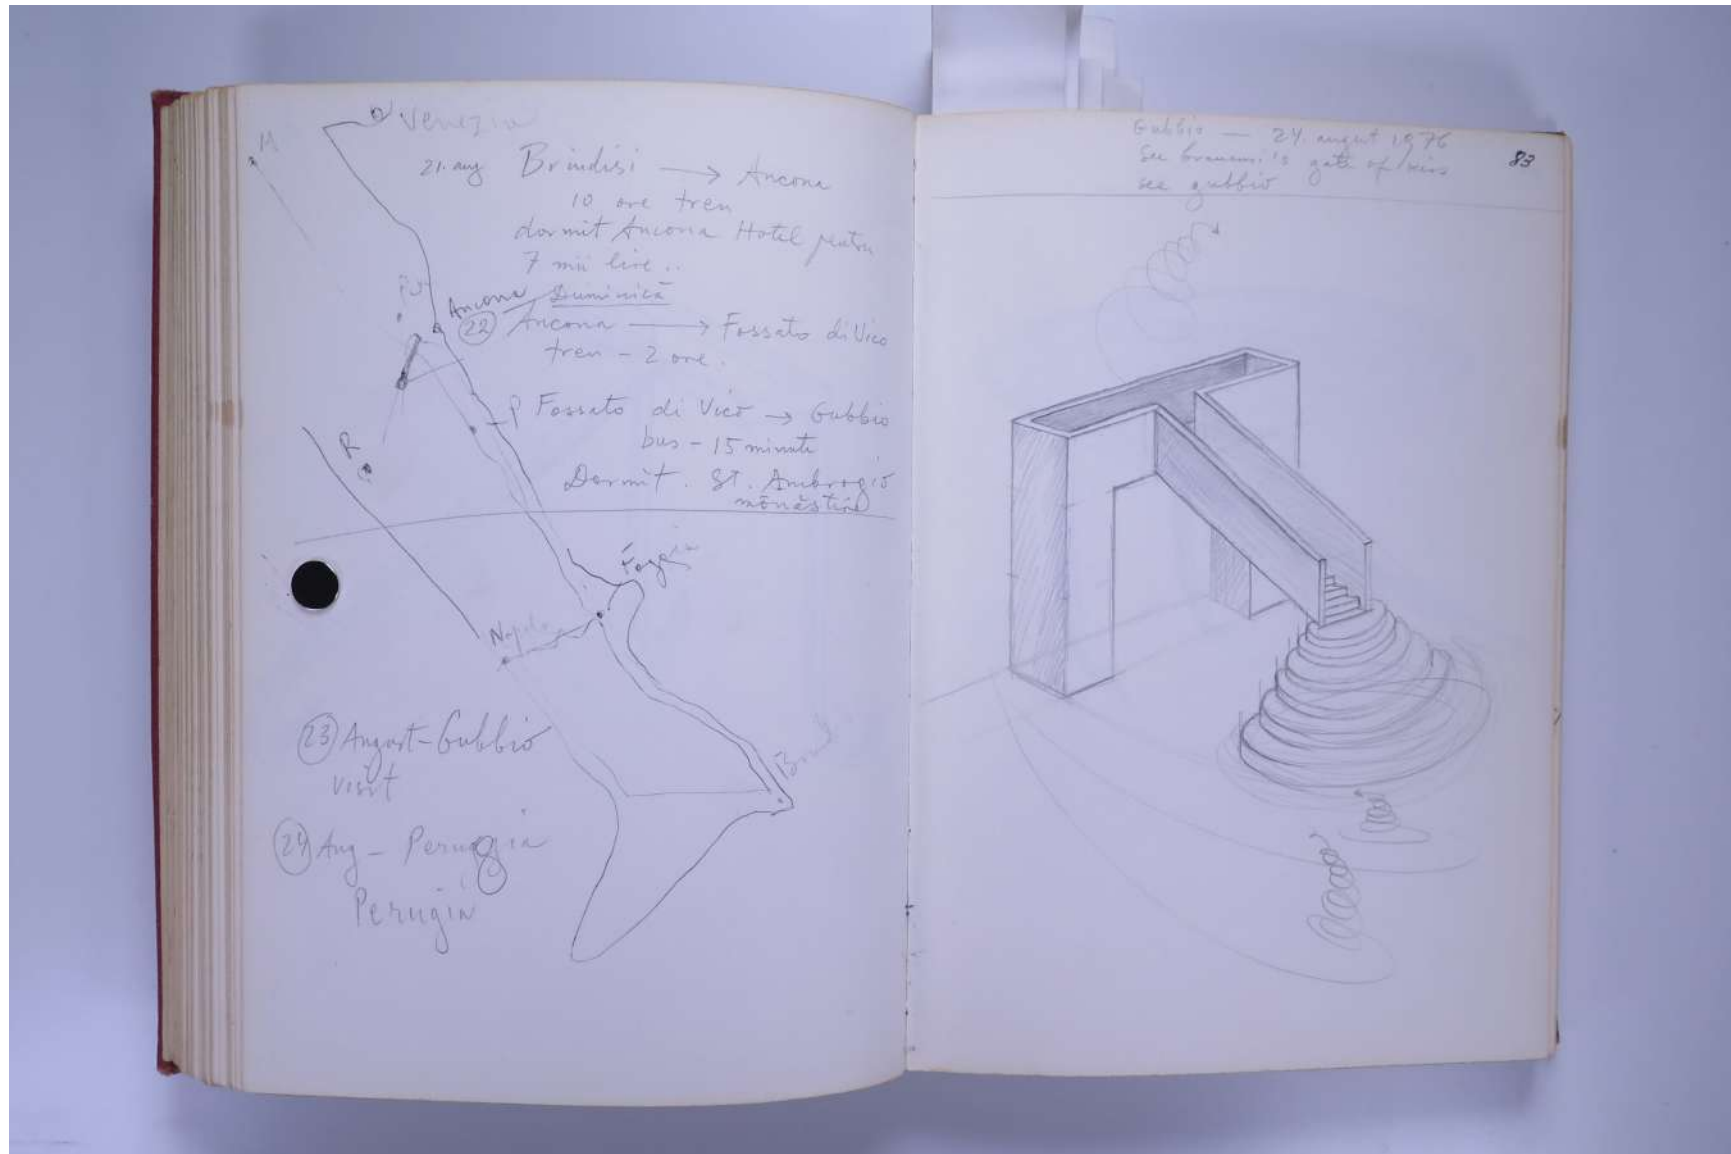 M
Venezia
21. aug Brindisi → Ancona
10 ore tren
dormit Ancona Hotel pentru
7 mii lire ..
Ancona Duminică
22 Ancona → Fossato di Vico
tren - 2 ore.
P Fossato di Vico → Gubbio
bus - 15 minute
R
Dormit. St. Ambrogio
mănăstire
Foggia
Napoli
Brind
23 August - Gubbio
visit
24 Aug - Peruggia
Perugia
Gubbio — 24. august 1976
See brancusi's gate of kiss
see gubbio
83